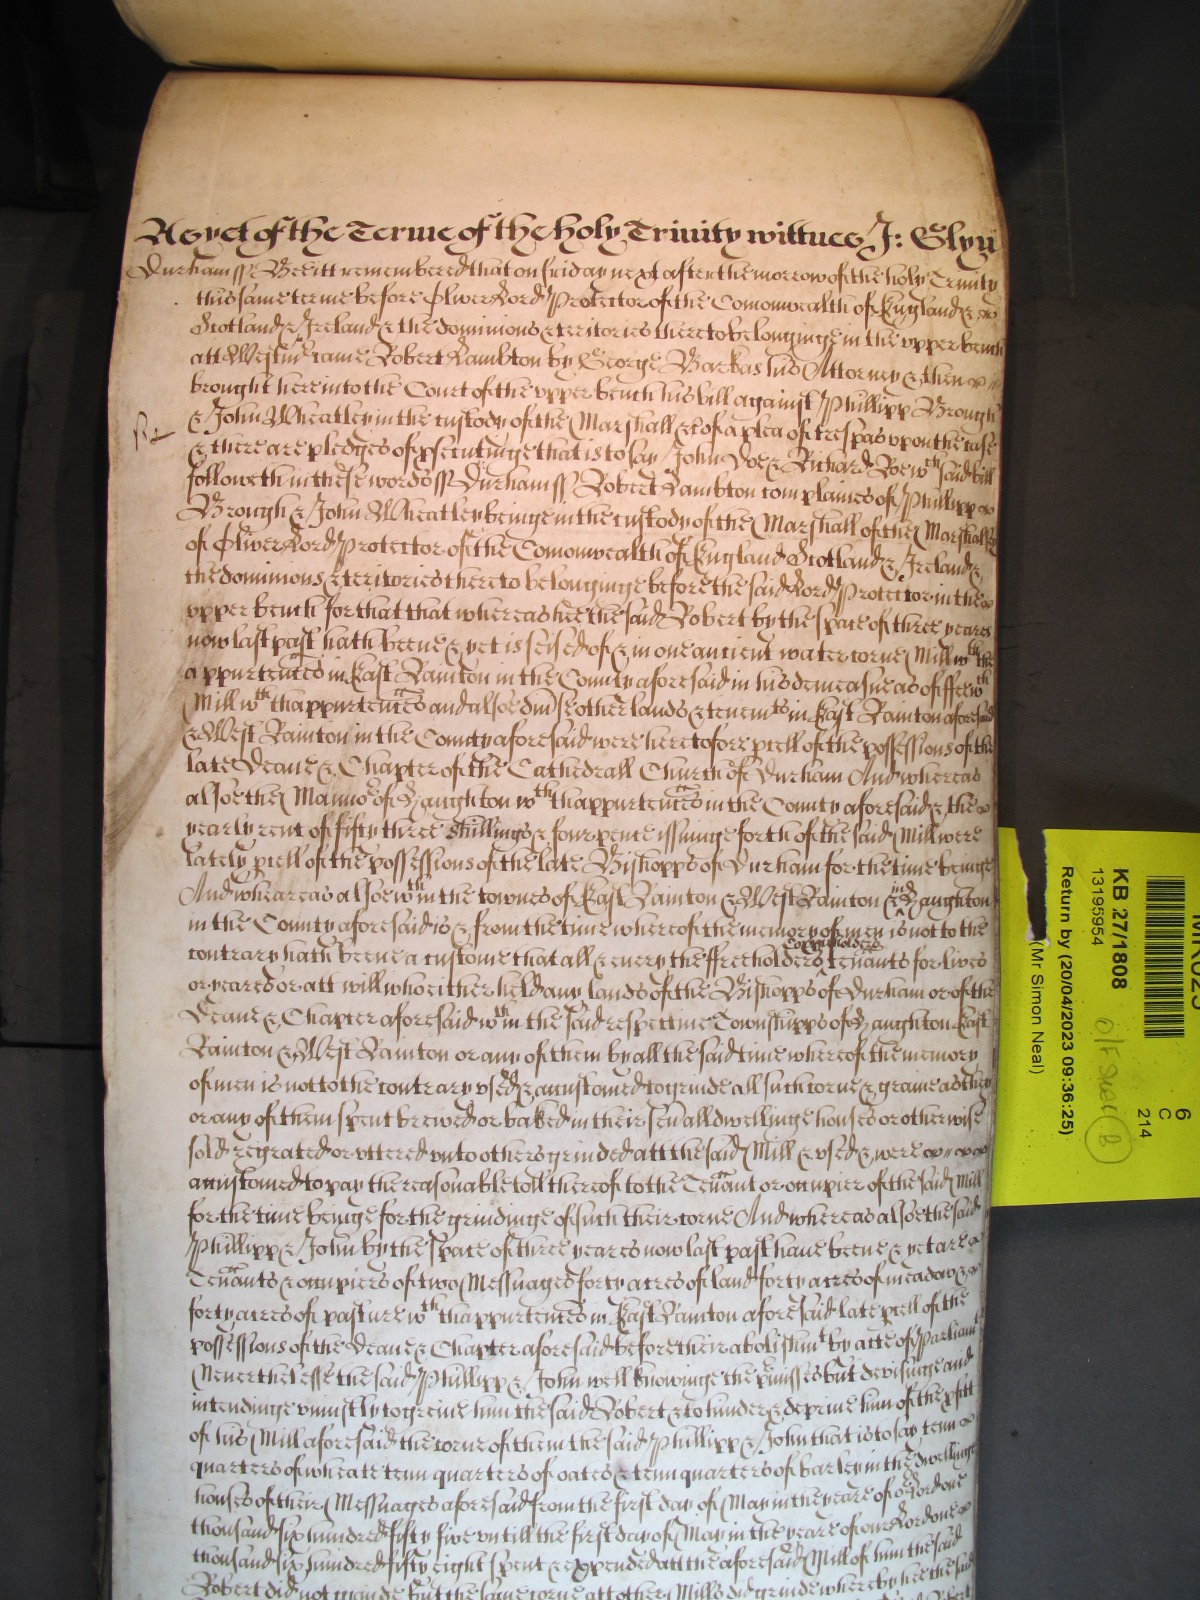 As yet of the Terme of the holy Trinity wittnes J: Glyn
Durham ss Be it remembred that on friday next after the morrow of the holy Trinity
this same terme before Oliver Lord Protector of the Comonwealth of England &
Scotland & Ireland & the dominions & territories thereto belonginge in the upper bench
att Westmr came Robert Lambton by George Barkas his Attorney & then
brought here into the Court of the upper bench his bill against Phillipp Brough
& John Wheatley in the custody of the Marshall &c of a plea of trespas upon the case
& there are pledges of psecutinge that is to say John Doe & Richard Roe wch said bill
followeth in these words ss Durham ss Robert Lambton complaines of Phillipp
Brough & John Wheatley beinge in the custody of the Marshall of the Marshalls
of Oliver Lord Protector of the Comonwealth of England Scotland & Ireland &
the dominions & territories thereto belonginge before the said Lord Protector in the
upper bench for that that whereas hee the said Robert by the space of three yeares
now last past hath beene & yet is seised of & in one ancient water corne Mill wth the
appurtences in East Rainton in the County aforesaid in his demeasne as of ffee wch
Mill wth thappurtences and alsoe divse other lands & tenemts in East Rainton aforesaid
& West Rainton in the County aforesaid were heretofore pcell of the possessions of the
late Deane & Chapter of the Cathedrall Church of Durham And whereas
alsoe the Mannor of Haughton wth thappurtences in the County aforesaid & the
yearly rent of fifty three shillings & four pence issuinge forth of the said Mill were
lately pcell of the possessions of the late Bishopps of Durham for the time beinge
And wheareas alsoe wthin the townes of East Rainton & West Rainton & Haughton
in the County aforesaid is & from the time whereof the memory of men is not to the
contrary hath beene a custome that all & every the ffreeholders Coppieholders tenants for lives
or yeares or att will who either held any lands of the Bishopps of Durham or of the
Deane & Chapter aforesaid wthin the said respective Townshipps of Haughton East
Rainton & West Rainton or any of them by all the said time whereof the memory
of men is not to the contrary used & accustomed to grinde all such corne & graine as they
or any of them spent brewed or baked in their sevall dwellinge houses or otherwise
sold regrated or uttered unto others grinded att the said Mill & used & were
accustomed to pay the reasonable toll thereof to the Tenant or occupier of the said Mill
for the time beinge for the grindinge of such their corne And whereas alsoe the said
Phillipp & John by the space of three yeares now last past have beene & yet are
Tenants & occupiers of two Messuages forty acres of land forty acres of meadow &
forty acres of pasture wth thappurtences in East Rainton aforesaid late pcell of the
possessions of the Deane & Chapter aforesaid before their abolishmt by acte of Parliamt
Neverthelesse the said Phillipp & John well knowinge the pmisses but devisinge and
intendinge uniustly to greive him the said Robert & to hinder & deprive him of the pfitt
of his Mill aforesaid the corne of them the said Phillipp & John that is to say tenn
quarters of wheate tenn quarters of oates & tenn quarters of barley in the dwellinge
houses of their Messuages aforesaid from the first day of May in the yeare of or Lord one
thousand six hundred fifty five untill the first day of May in the yeare of our Lord one
thousand six hundred fifty eight spent & expended att the aforesaid Mill of him the said
Robert did not grinde but the same corne att other Mills did grinde whereby hee the said
6
C
214
KB 27/1808
13195954
Return by (20/04/2023 09:36:25)
(Mr Simon Neal)